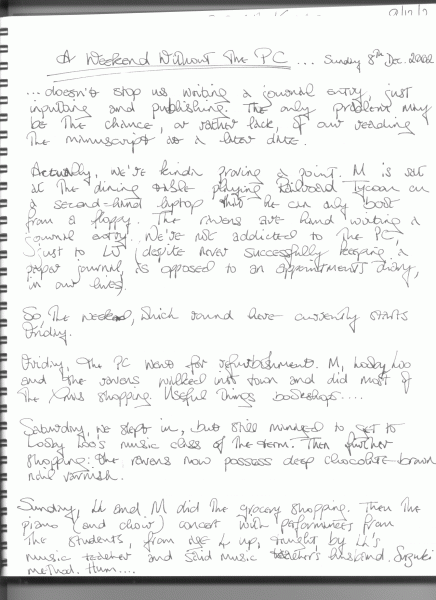 A Weekend Without The PC ... Sunday 8th Dec. 2002
... doesn't stop us writing a journal entry, just
inputting and publishing. The only problem may
be the chance, or rather lack, of our reading
the manuscript at a later date.
Actually, we're kinda proving a point. M is sat
at the dining table playing Railroad Tycoon on
a second-hand laptop that he can only boot
from a floppy. The ravens are hand writing a
journal entry. We're not addicted to the PC,
just to LJ (despite never successfully keeping a
paper journal, as opposed to an appointments diary,
in our lives).
So, the weekend, which round here currently starts
Friday.
Friday, the PC went for refurbishment. M, Looby Loo
and the ravens walked into town and did most of
the Xmas shopping. Useful things bookshops....
Saturday, we slept in, but still managed to get to
Looby Loo's music class of the term. Then further
shopping: the ravens now possess deep chocolate brown
nail varnish.
Sunday, LL and M did the grocery shopping. Then the
piano (and choir) concert with performances from
the students, from age 4 up, taught by LL's
music teacher and said music teacher's husband. Suzuki
method. Hum....